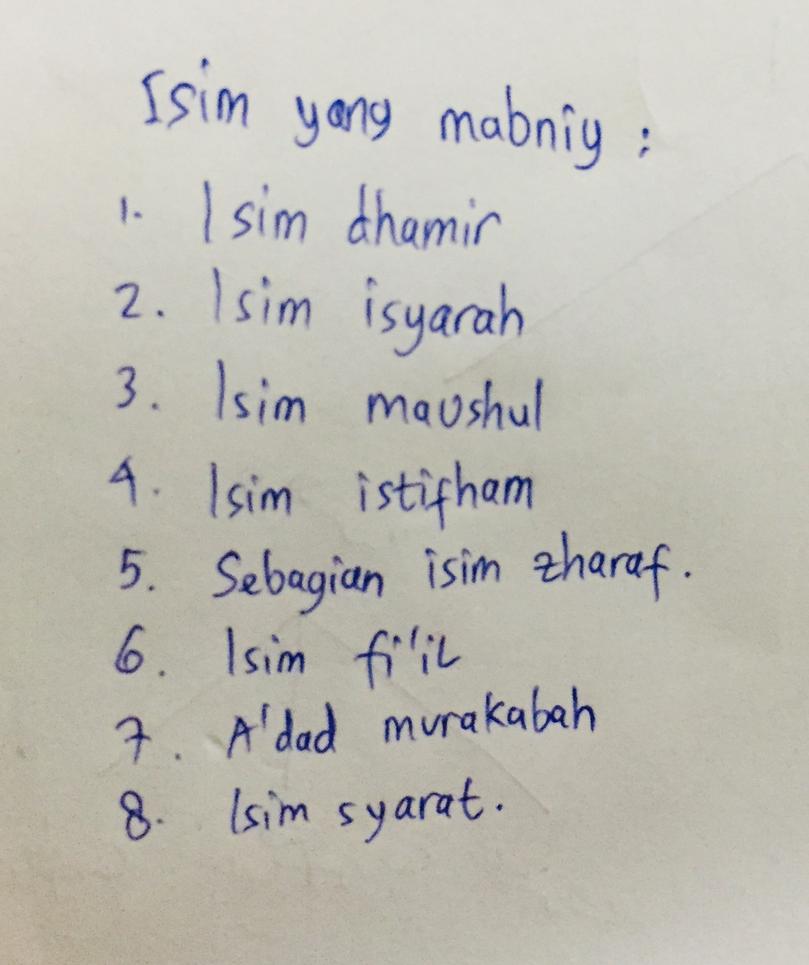 Isim yang mabniy :
1. Isim dhamir
2. Isim isyarah
3. Isim maushul
4. Isim istifham
5. Sebagian isim zharaf.
6. Isim fi'il
7. A'dad murakabah
8. Isim syarat.